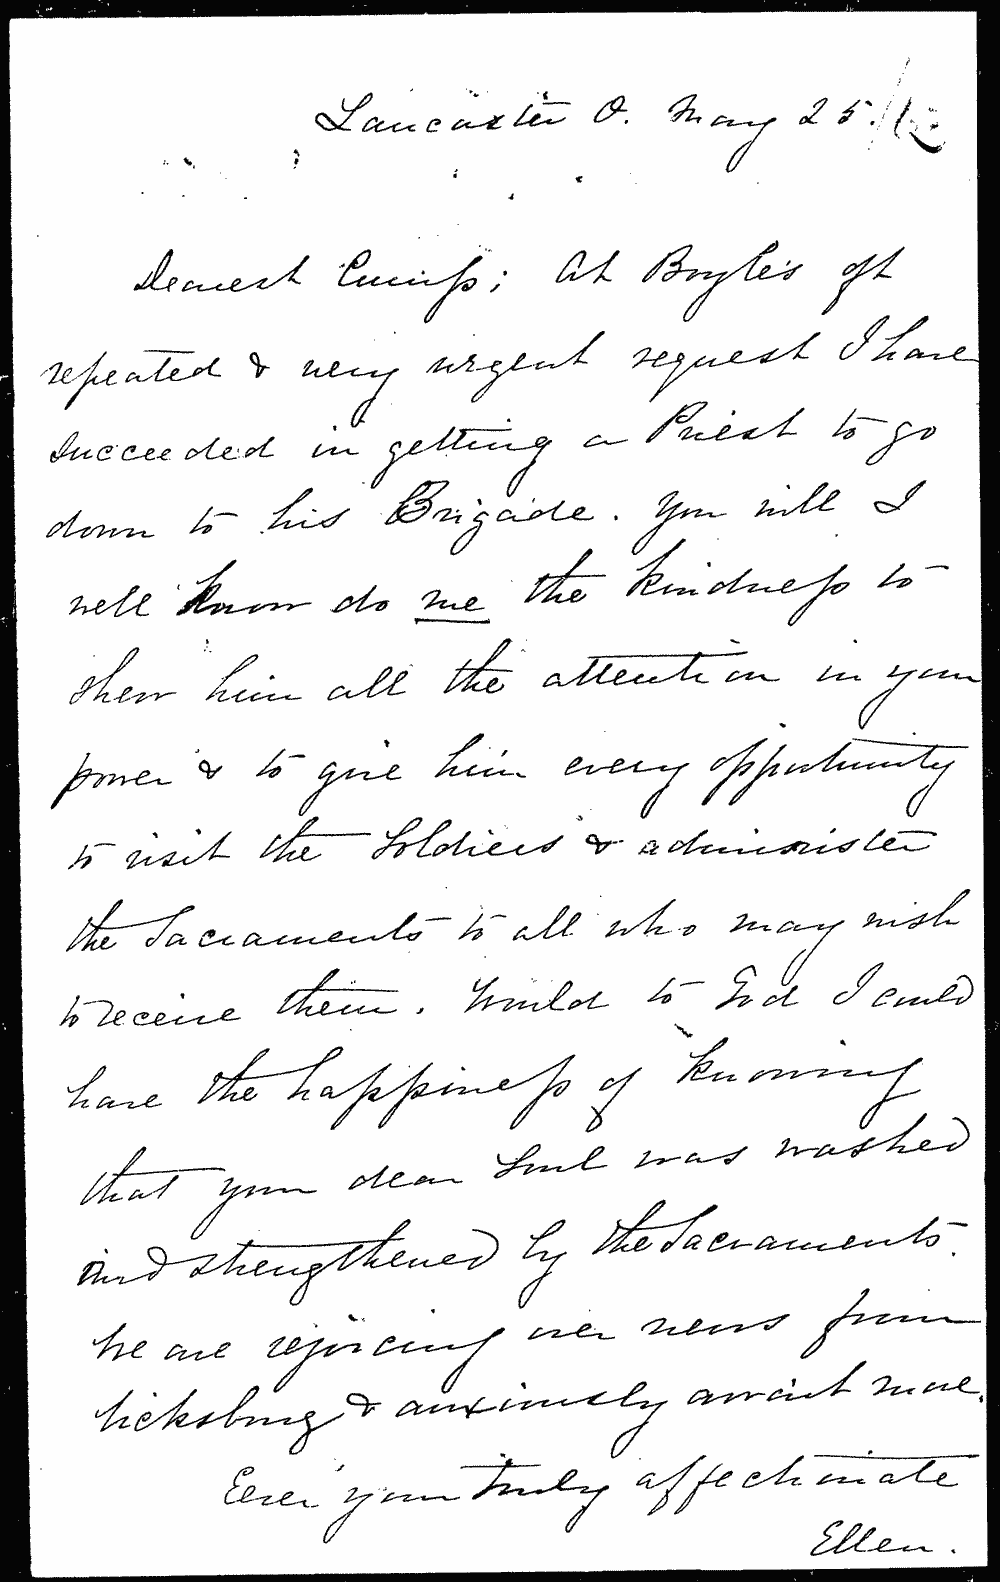 Lancaster O. May 25.
Dearest Cump; At Boyle's oft
repeated & very urgent request I have
succeeded in getting a Priest to go
down to his Brigade. You will I
well know do me the kindness to
shew him all the attention in your
power & to give him every opportunity
to visit the Soldiers & administer
the Sacraments to all who may wish
to receive them. Would to God I could
have the happiness of knowing
that your dear Soul was washed
and strengthened by the Sacraments.
We are rejoicing over news from
Vicksburg & anxiously await more.
Ever your truly affectionate
Ellen.